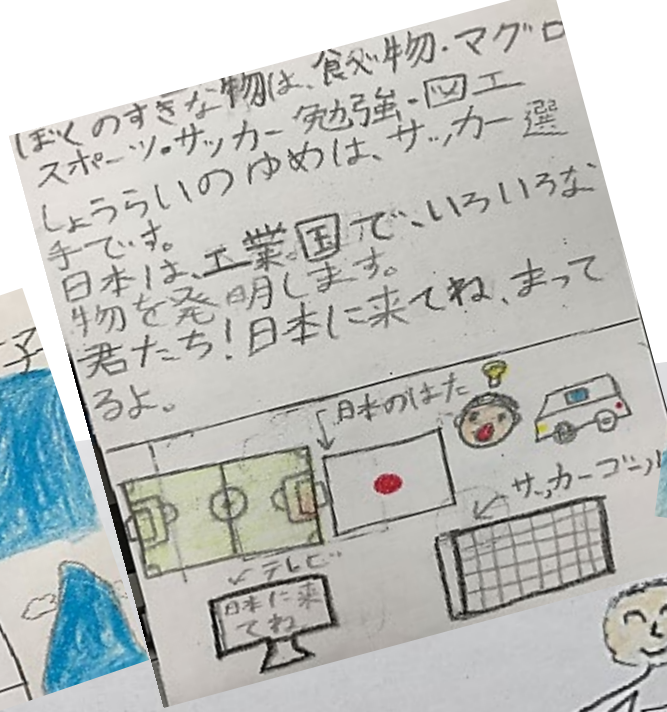 ぼくのすきな物は、食べ物・マグロ
スポーツ・サッカー 勉強・図工
しょうらいのゆめは、サッカー選
手です。
日本は、工業国で、いろいろな
物を発明します。
君たち!日本に来てね、まって
るよ。
日本のはた
サッカーゴール
テレビ
日本に来
てね
子